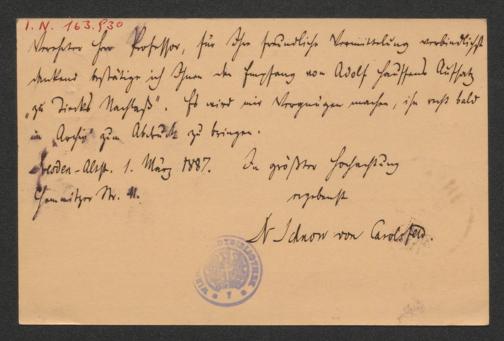 I. N. 163.830
Verehrter Herr Professor, für Ihre freundliche Vermittelung verbindlichst
dankend bestätige ich Ihnen den Empfang von Adolf Hauffens Aufsatz
„zu Tiecks Nachlaß“. Es wird mir Vergnügen machen, ihn recht bald
im Archiv zum Abdruck zu bringen.
Dresden-Altst. 1. März 1887. In größter Hochachtung
Chemnitzer Str. 11. ergebenst
Dr Schnorr von Carolsfeld.